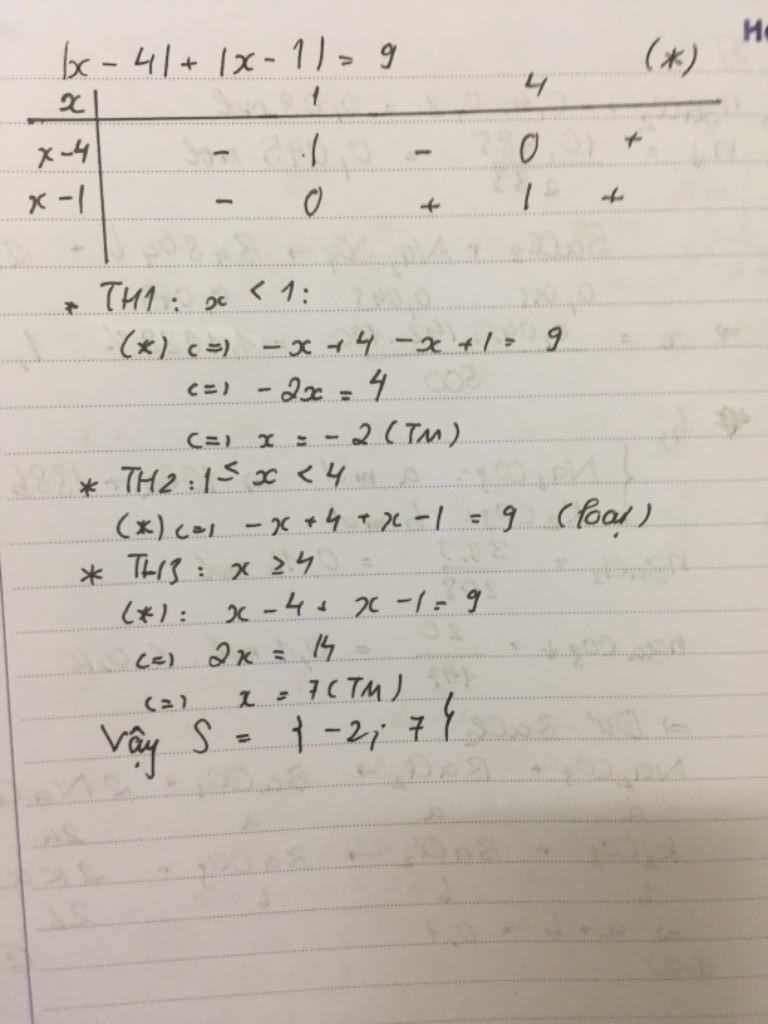 |x - 4| + |x - 1| = 9 (*)
x | 1 4
x-4 | - | - 0 +
x-1 | - 0 + | +
* TH1: x < 1:
(*) <=> -x + 4 - x + 1 = 9
<=> -2x = 4
<=> x = -2 (TM)
* TH2: 1 ≤ x < 4
(*) <=> -x + 4 + x - 1 = 9 (loại)
* TH3: x ≥ 4
(*): x - 4 + x - 1 = 9
<=> 2x = 14
<=> x = 7 (TM)
Vậy S = { -2; 7 }